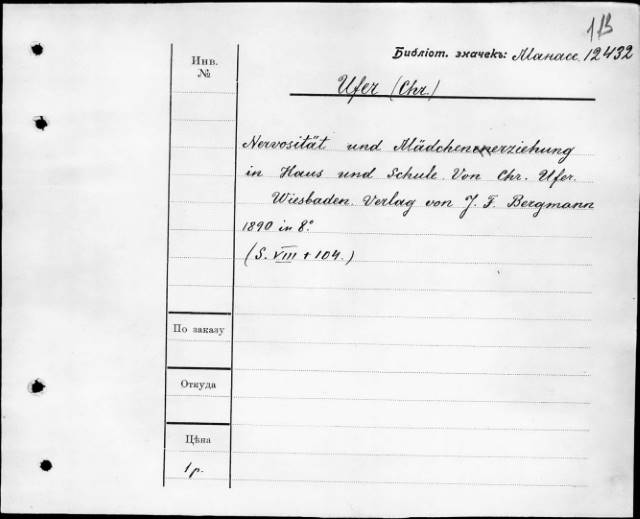 1B
Библіот. значекъ: Манасс. 12432
Инв.
№
Ufer (Chr.)
Nervosität und Mädchenerziehung
in Haus und Schule. Von Chr. Ufer.
Wiesbaden. Verlag von J. F. Bergmann
1890 in 8º.
(S. VIII + 104.)
По заказу
Откуда
Цѣна
1 р.